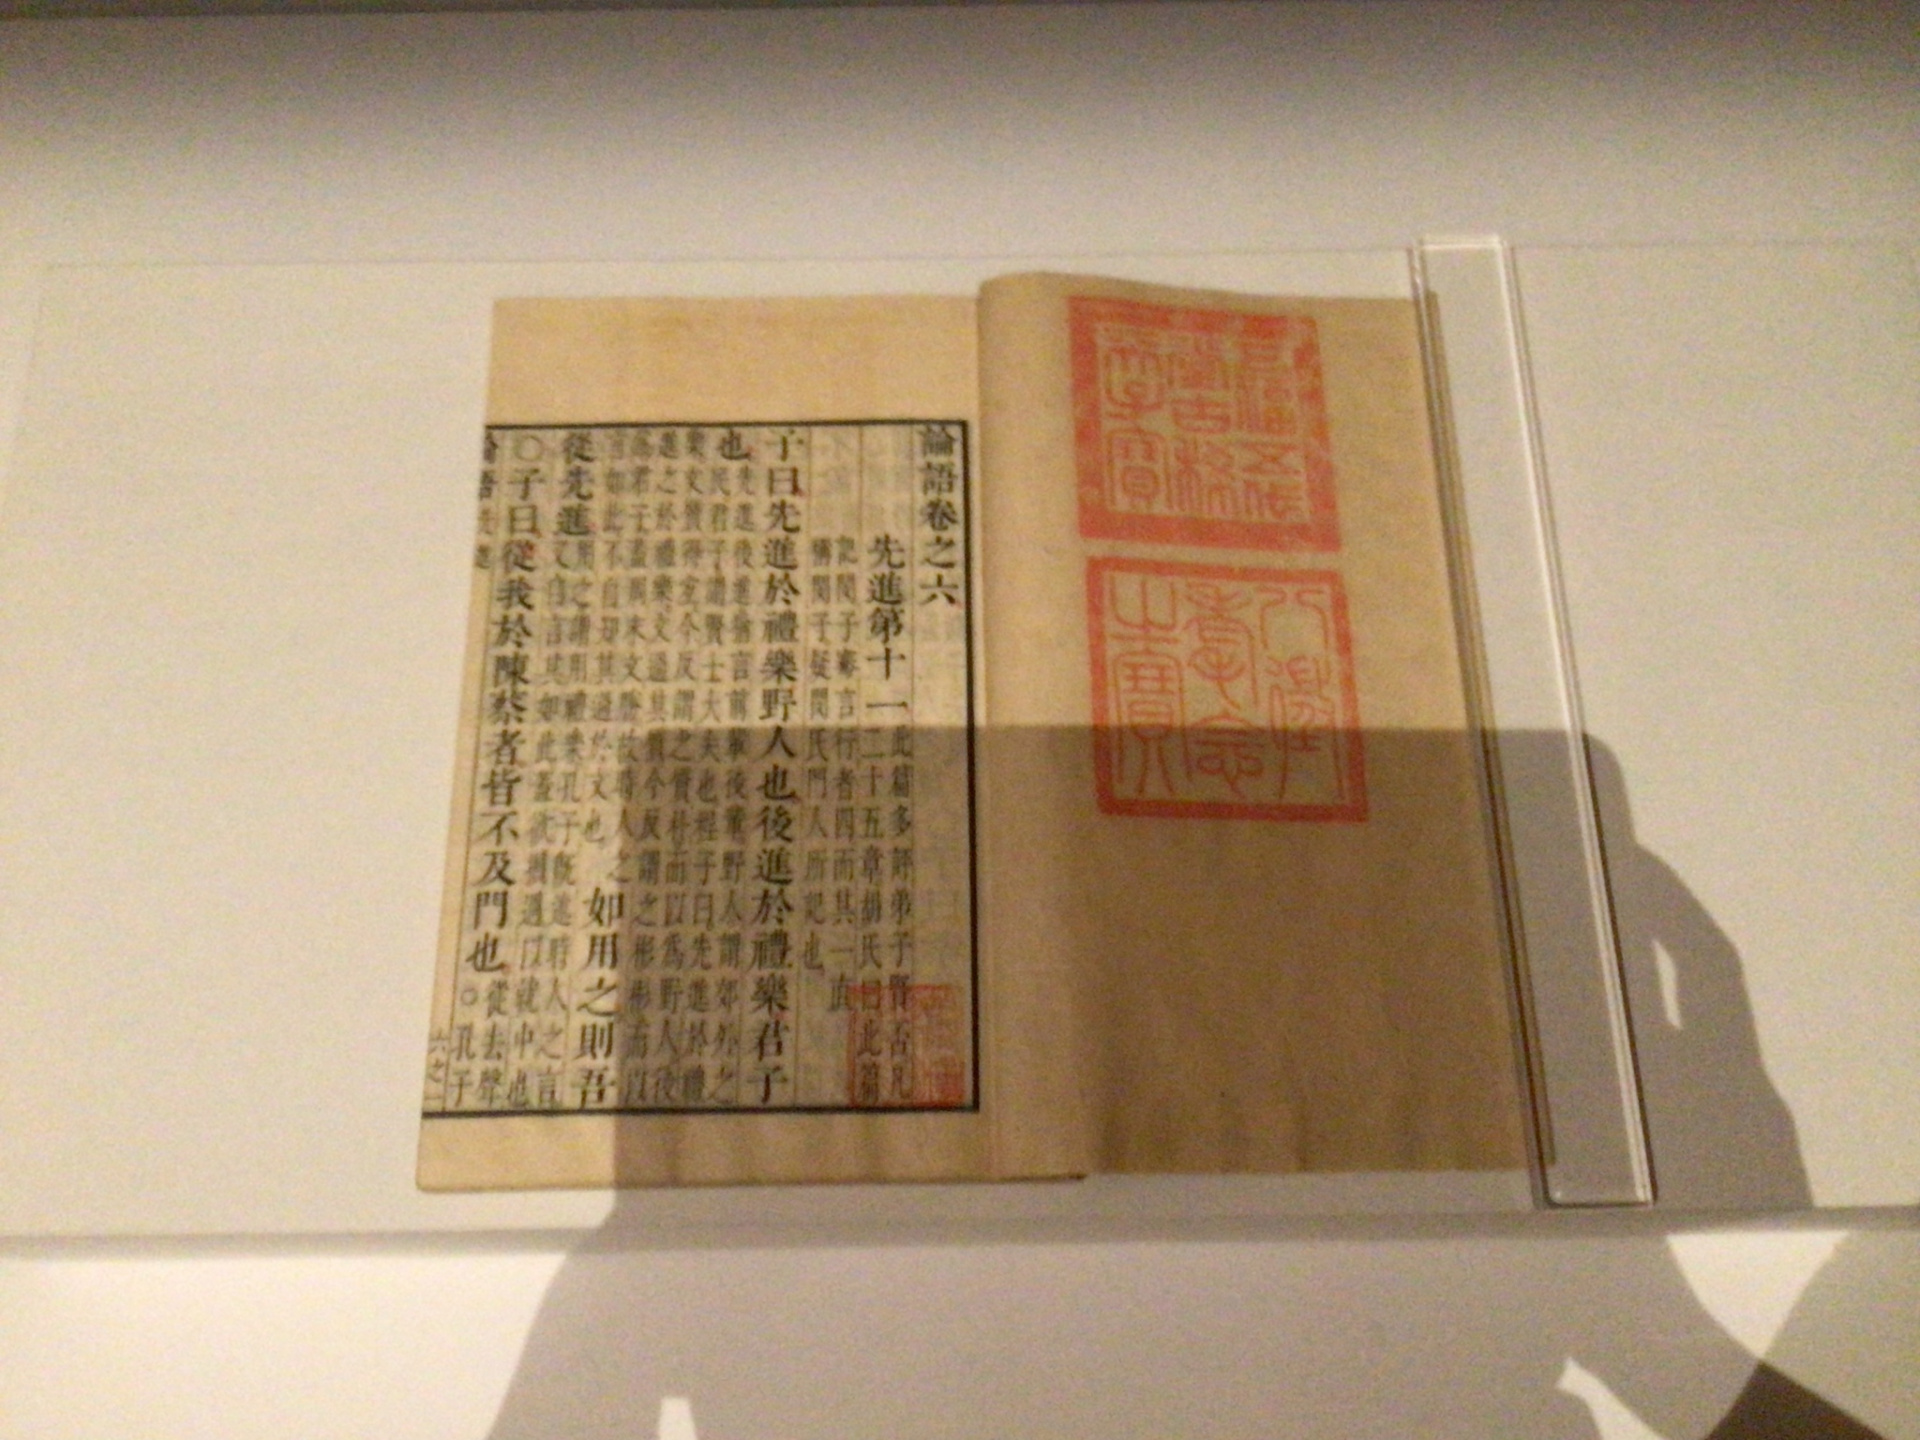 五福五代
堂古稀
天子寶
八徵
耄念
之寶
論語卷之六
先進第十一 此篇多評弟子賢否凡
二十五章胡氏曰此篇
記閔子騫言行者四而其一直
稱閔子疑閔氏門人所記也
子曰先進於禮樂野人也後進於禮樂君子
也 先進後進猶言前輩後輩野人謂郊外之
民君子謂賢士大夫也程子曰先進於禮
樂文質得宜今反謂之質朴而以爲野人後
進之於禮樂文過其質今反謂之彬彬而以
爲君子蓋周末文勝故時人之
言如此不自知其過於文也
如用之則吾
從先進 用之謂用禮樂孔子既述時人之言
又自言其如此蓋欲損過以就中也
○子曰從我於陳蔡者皆不及門也 ○從去聲
孔子
論語 先進 六之一